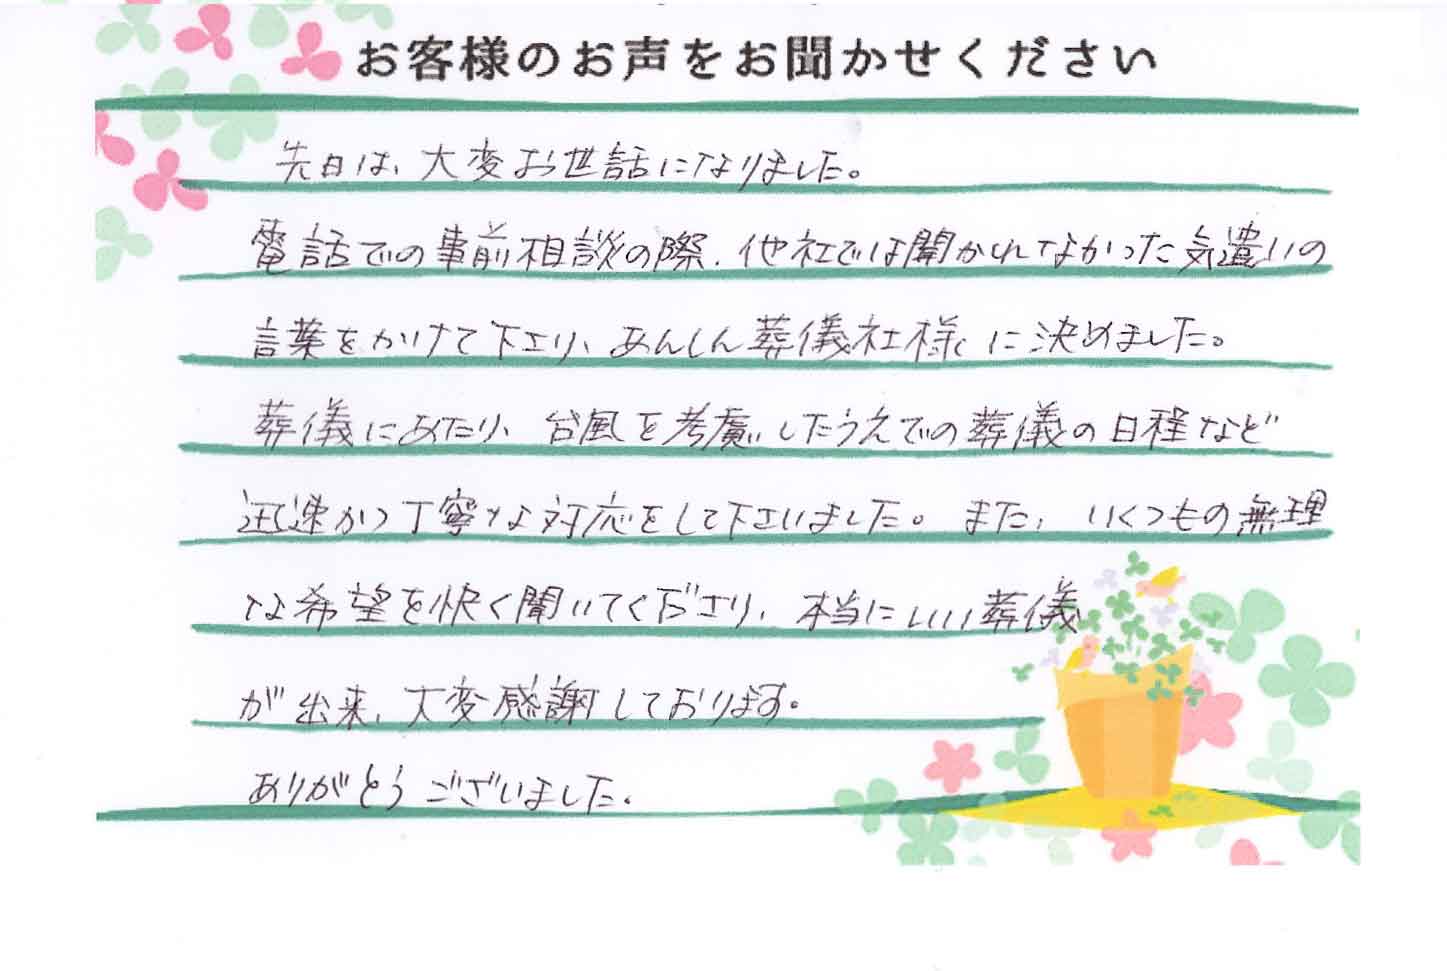 お客様のお声をお聞かせください
先日は、大変お世話になりました。
電話での事前相談の際、他社では聞かれなかった気遣いの
言葉をかけて下さり、あんしん葬儀社様に決めました。
葬儀にあたり、台風を考慮したうえでの葬儀の日程など
迅速かつ丁寧な対応をして下さいました。また、いくつもの無理
な希望を快く聞いてくださり、本当にいい葬儀
が出来、大変感謝しております。
ありがとうございました。